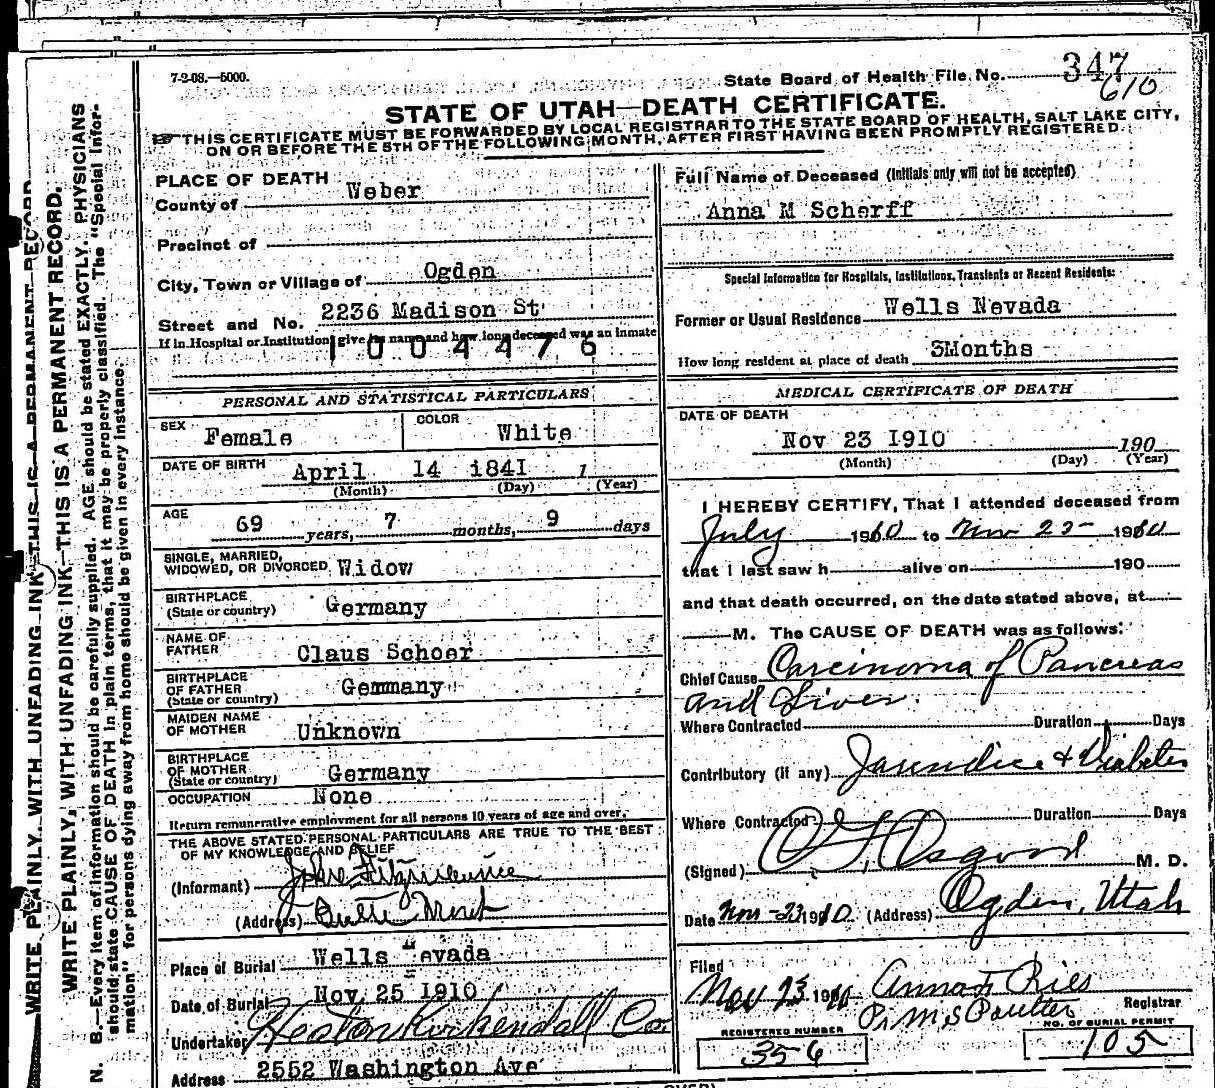 7-2-08.—5000.
State Board of Health File No. 347
610
STATE OF UTAH—DEATH CERTIFICATE.
THIS CERTIFICATE MUST BE FORWARDED BY LOCAL REGISTRAR TO THE STATE BOARD OF HEALTH, SALT LAKE CITY,
ON OR BEFORE THE 5TH OF THE FOLLOWING MONTH, AFTER FIRST HAVING BEEN PROMPTLY REGISTERED.
WRITE PLAINLY, WITH UNFADING INK—THIS IS A PERMANENT RECORD
WRITE PLAINLY, WITH UNFADING INK—THIS IS A PERMANENT RECORD.
N. B.—Every item of information should be carefully supplied. AGE should be stated EXACTLY. PHYSICIANS
should state CAUSE OF DEATH in plain terms, that it may be properly classified. The "Special Infor-
mation" for persons dying away from home should be given in every instance.
PLACE OF DEATH
County of Weber
Precinct of
City, Town or Village of Ogden
Street and No. 2236 Madison St
If in Hospital or Institution give its name and how long deceased was an inmate
1004476
PERSONAL AND STATISTICAL PARTICULARS
SEX Female COLOR White
DATE OF BIRTH April 14 i84I 1
(Month) (Day) (Year)
AGE 69 years, 7 months, 9 days
SINGLE, MARRIED,
WIDOWED, OR DIVORCED Widow
BIRTHPLACE
(State or country) Germany
NAME OF
FATHER Claus Schoer
BIRTHPLACE
OF FATHER
(State or country) Gemmany
MAIDEN NAME
OF MOTHER Unknown
BIRTHPLACE
OF MOTHER
(State or country) Germany
OCCUPATION None
Return remunerative employment for all persons 10 years of age and over.
THE ABOVE STATED PERSONAL PARTICULARS ARE TRUE TO THE BEST
OF MY KNOWLEDGE AND BELIEF
(Informant)
(Address) Butte Mont
Place of Burial Wells evada
Date of Burial Nov 25 I9I0
Undertaker Heaton Kirkendall Co.
Address 2552 Washington Ave
Full Name of Deceased (Initials only will not be accepted)
Anna M Scherff
Special Information for Hospitals, Institutions, Transients or Recent Residents:
Former or Usual Residence Wells Nevada
How long resident at place of death 3Months
MEDICAL CERTIFICATE OF DEATH
DATE OF DEATH
Nov 23 I9I0 190
(Month) (Day) (Year)
I HEREBY CERTIFY, That I attended deceased from
July 1910 to Nov 23 1910
that I last saw h alive on 190
and that death occurred, on the date stated above, at
M. The CAUSE OF DEATH was as follows:
Chief Cause Carcinoma of Pancreas
and Liver.
Where Contracted Duration Days
Contributory (if any) Jaundice & Diabetes
Where Contracted Duration Days
(Signed) Osgood M. D.
Date Nov-23 1910 (Address) Ogden, Utah
Filed
Nov 23 1910 Anna F Ries
Pr. M S Poulter Registrar
REGISTERED NUMBER NO. OF BURIAL PERMIT
356 105
(OVER)